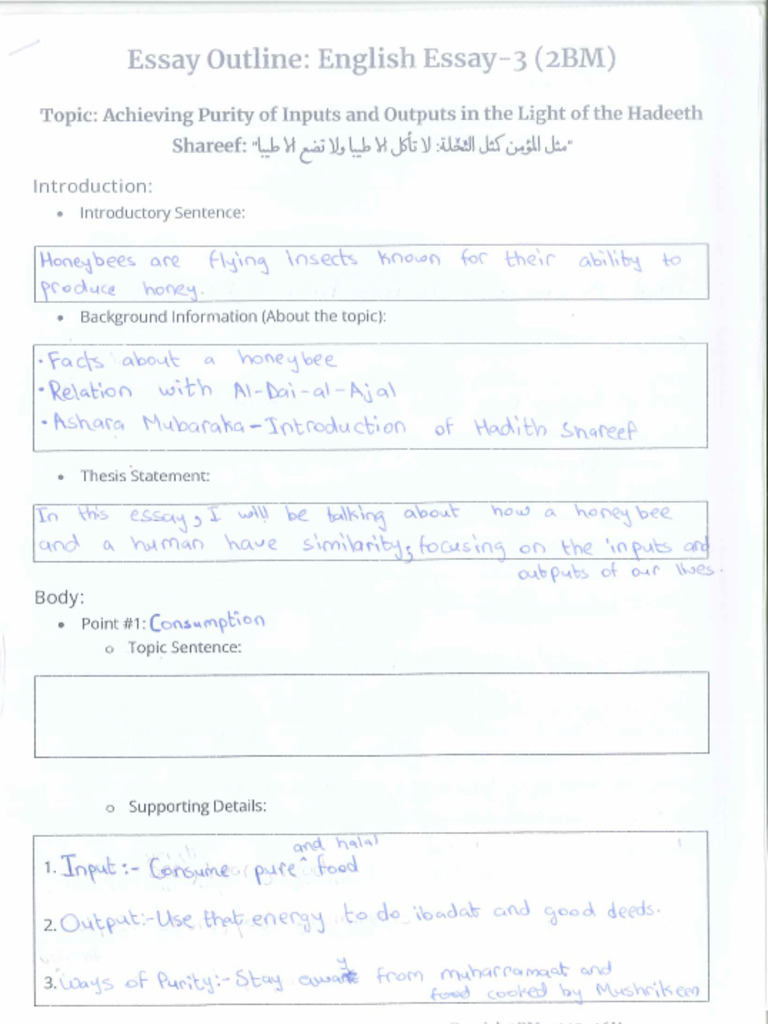 Essay Outline: English Essay-3 (2BM)
Topic: Achieving Purity of Inputs and Outputs in the Light of the Hadeeth
Shareef: "مثل المؤمن كمثل النحّلة: لا تأكل الا طيبا ولا تضع الا طيبا"
Introduction:
• Introductory Sentence:
Honeybees are flying insects known for their ability to
produce honey.
• Background Information (About the topic):
• Facts about a honeybee
• Relation with Al-Dai-al-Ajal
• Ashara Mubaraka - Introduction of Hadith Shareef
• Thesis Statement:
In this essay, I will be talking about how a honeybee
and a human have similarity, focusing on the inputs and
outputs of our lives.
Body:
• Point #1: Consumption
o Topic Sentence:
o Supporting Details:
and halal
1. Input:- Consume pure ^ food
2. Output:- Use that energy to do ibadat and good deeds.
3. Ways of Purity:- Stay away from muharramaat and
food cooked by Mushrikeen